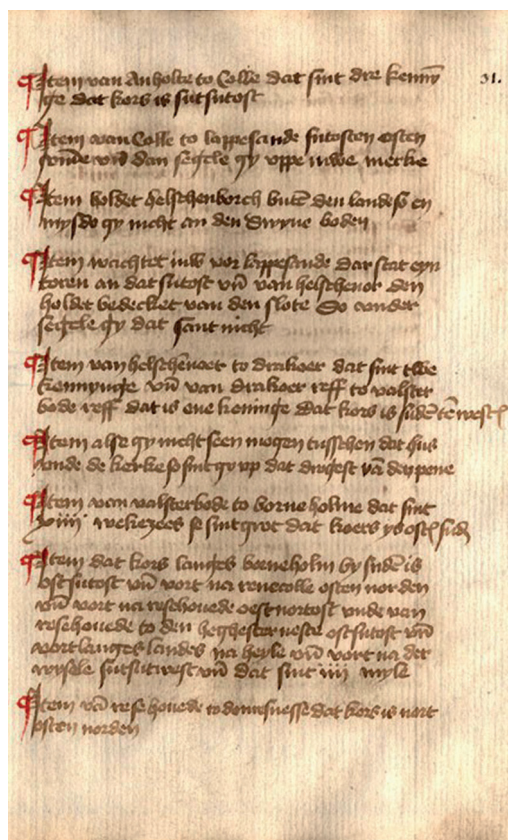 Item van Anholte to Colle dat sint dre kenny̅ 31.
ge dat kors is sutsutost
Item van Colle to lappesande sutosten osten
vn̅de vn̅ dan segele gy vppe iuwe mercke
Item holdet helschenborch bute̅ den landes so en
mysdo gy nicht an den Swyne boden
Item wachtet iuw vor lappesande Dar stat eyn
toren an dat sutost vn̅ van helschenor den
holdet bedecket van den slote So
segele gy dat sant nicht
Item van helsche̅noer to drakoer dat sint twe
kennynge vn̅ van drakoer reff to valster
bode reff dat is ene keninge dat kors is sude̅ te̅ westen
Item alse gy nicht seen mogen tusschen dat hus
vnde de kerke so sint gy vp dat drogest va̅ deypene
Item van valsterbode to borneholme dat sint
xviij wekezees se sint grot dat koers ys ost sud
Item dat kors langes borneholm by sude̅ is
ostsutost vn̅ vort na revecolle osten norden
vn̅ vort na resehouede oestnortost vnde van
resehouede to den heghester neste ostsutost vn̅
vort langes landes na heyle vn̅ vort na der
wysele sutsutwest vn̅ dat sint iiij myle
Item va̅ rese houede to domesnesse dat kors is nort
osten norden